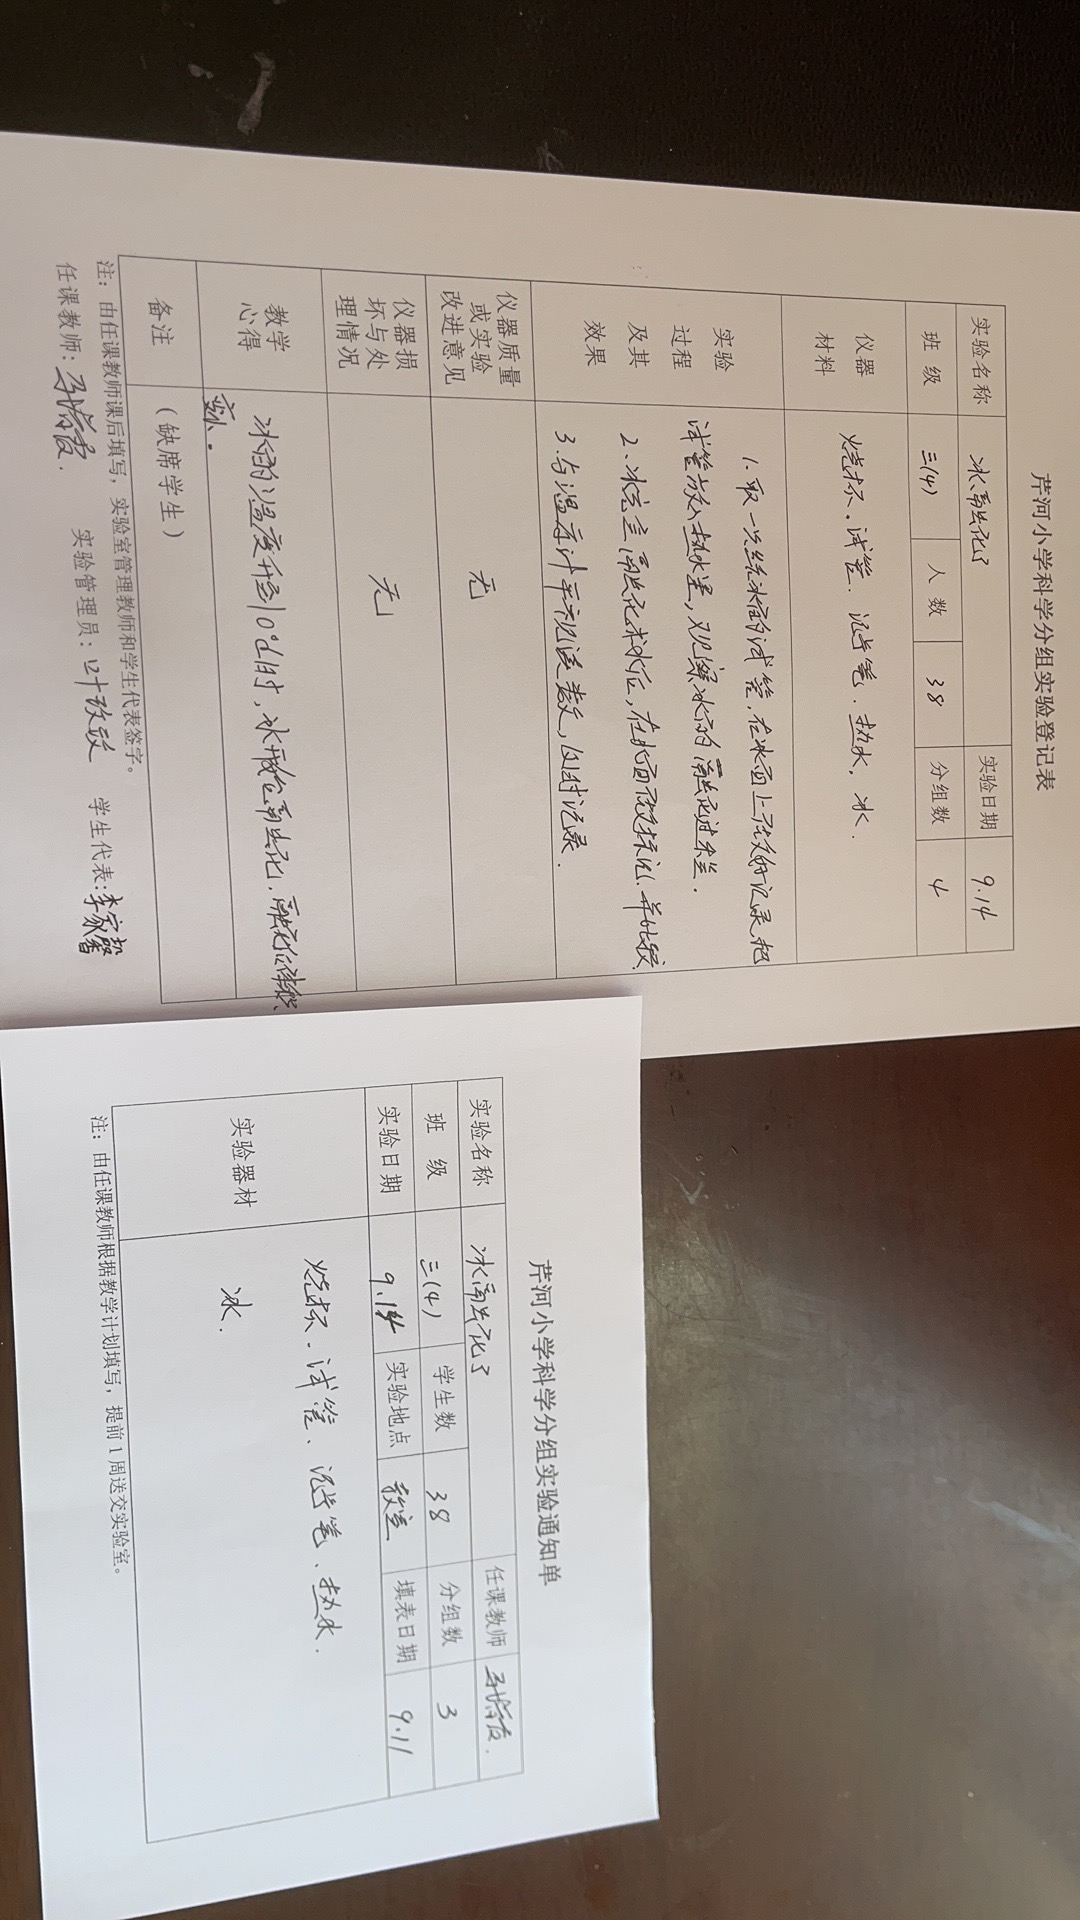 芹河小学科学分组实验登记表
实验名称 冰融化了 实验日期 9.14
班 级 三(4) 人 数 38 分组数 4
仪器材料 烧杯、试管、记号笔、热水、冰.
实验过程及其效果
1.取一只结冰的试管,在冰面上的记录,把
试管放入热水里,观察冰的融化过程.
2.冰完全融化成水后,在水面做标记,并比较
3.与温度计平视读数,及时记录.
仪器质量或实验改进意见 无
仪器损坏与处理情况 无
教学心得 冰的温度升到0℃时,冰开始融化,融化后体积
变小.
备注 (缺席学生)
注:由任课教师课后填写,实验室管理教师和学生代表签字。
任课教师: 实验管理员: 学生代表:李家馨
芹河小学科学分组实验通知单
实验名称 冰融化了 任课教师
班 级 三(4) 学生数 38 分组数 3
实验日期 9.14 实验地点 教室 填表日期 9.11
实验器材 烧杯、试管、记号笔、热水.
冰.
注:由任课教师根据教学计划填写,提前1周送交实验室。